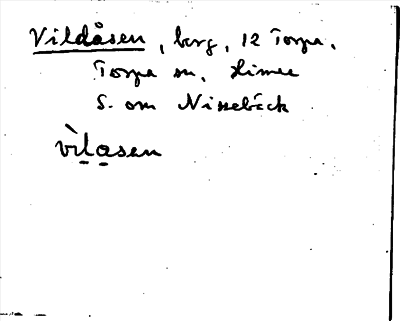 Vildåsen, berg, 12 Torpa,
Torpa sn, Kinne
S. om Nissebäck
vìlasen